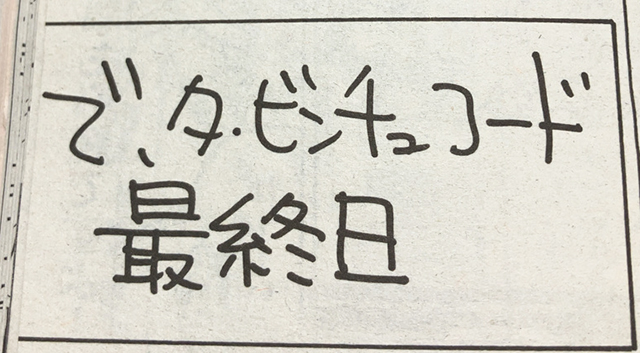 で、タ・ビンチュコード
最終日